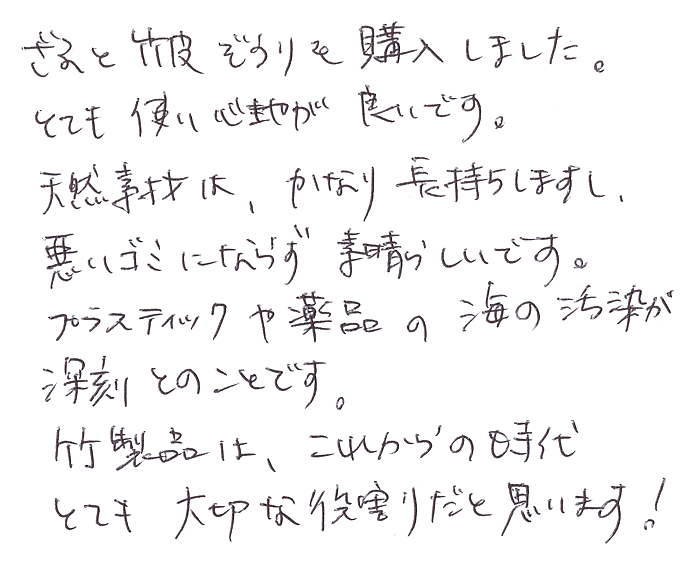 ざると竹皮ぞうりを購入しました。
とても使い心地が良いです。
天然素材は、かなり長持ちしますし、
悪いゴミにならず素晴らしいです。
プラスティックや薬品の海の汚染が
深刻とのことです。
竹製品は、これからの時代
とても大切な役割りだと思います!